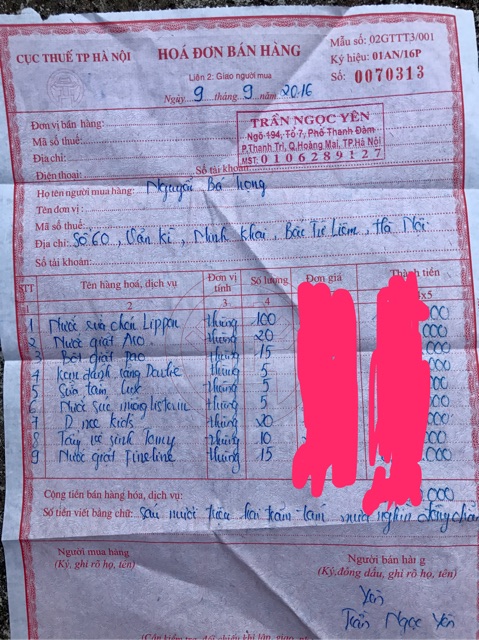 CỤC THUẾ TP HÀ NỘI
HOÁ ĐƠN BÁN HÀNG
Mẫu số: 02GTTT3/001
Ký hiệu: 01AN/16P
Số: 0070313
Liên 2: Giao người mua
Ngày 9 tháng 9 năm 2016
Đơn vị bán hàng:
Mã số thuế:
Địa chỉ:
Điện thoại: Số tài khoản:
TRẦN NGỌC YÊN
Ngõ 194, Tổ 7, Phố Thanh Đàm
P.Thanh Trì, Q.Hoàng Mai, TP.Hà Nội
MST: 0106289127
Họ tên người mua hàng: Nguyễn Bá
Tên đơn vị:
Mã số thuế:
Địa chỉ: Số 60, Văn Kì, Minh Khai, Bắc Từ Liêm, Hà Nội
Số tài khoản:
STT Tên hàng hoá, dịch vụ Đơn vị tính Số lượng Đơn giá Thành tiền
1 2 3 4 x5
1 Nước rửa chén thùng 100 000
2 Nước giặt thùng 20 .000
3 Bột giặt thùng 15 000
4 Kem đánh răng thùng 5 000
5 Sữa tắm Lux thùng 5 000
6 Nước súc miệng listerin thùng 5 .000
7 D nee kids thùng 20 000
8 thùng 10 000
9 Nước giặt Fineline thùng 15 .000
Cộng tiền bán hàng hóa, dịch vụ: 000
Số tiền viết bằng chữ: sáu mươi triệu hai trăm tám mươi nghìn đồng chẵn
Người mua hàng
(Ký, ghi rõ họ, tên)
Người bán hàng
(Ký, đóng dấu, ghi rõ họ, tên)
Yên
Trần Ngọc Yên